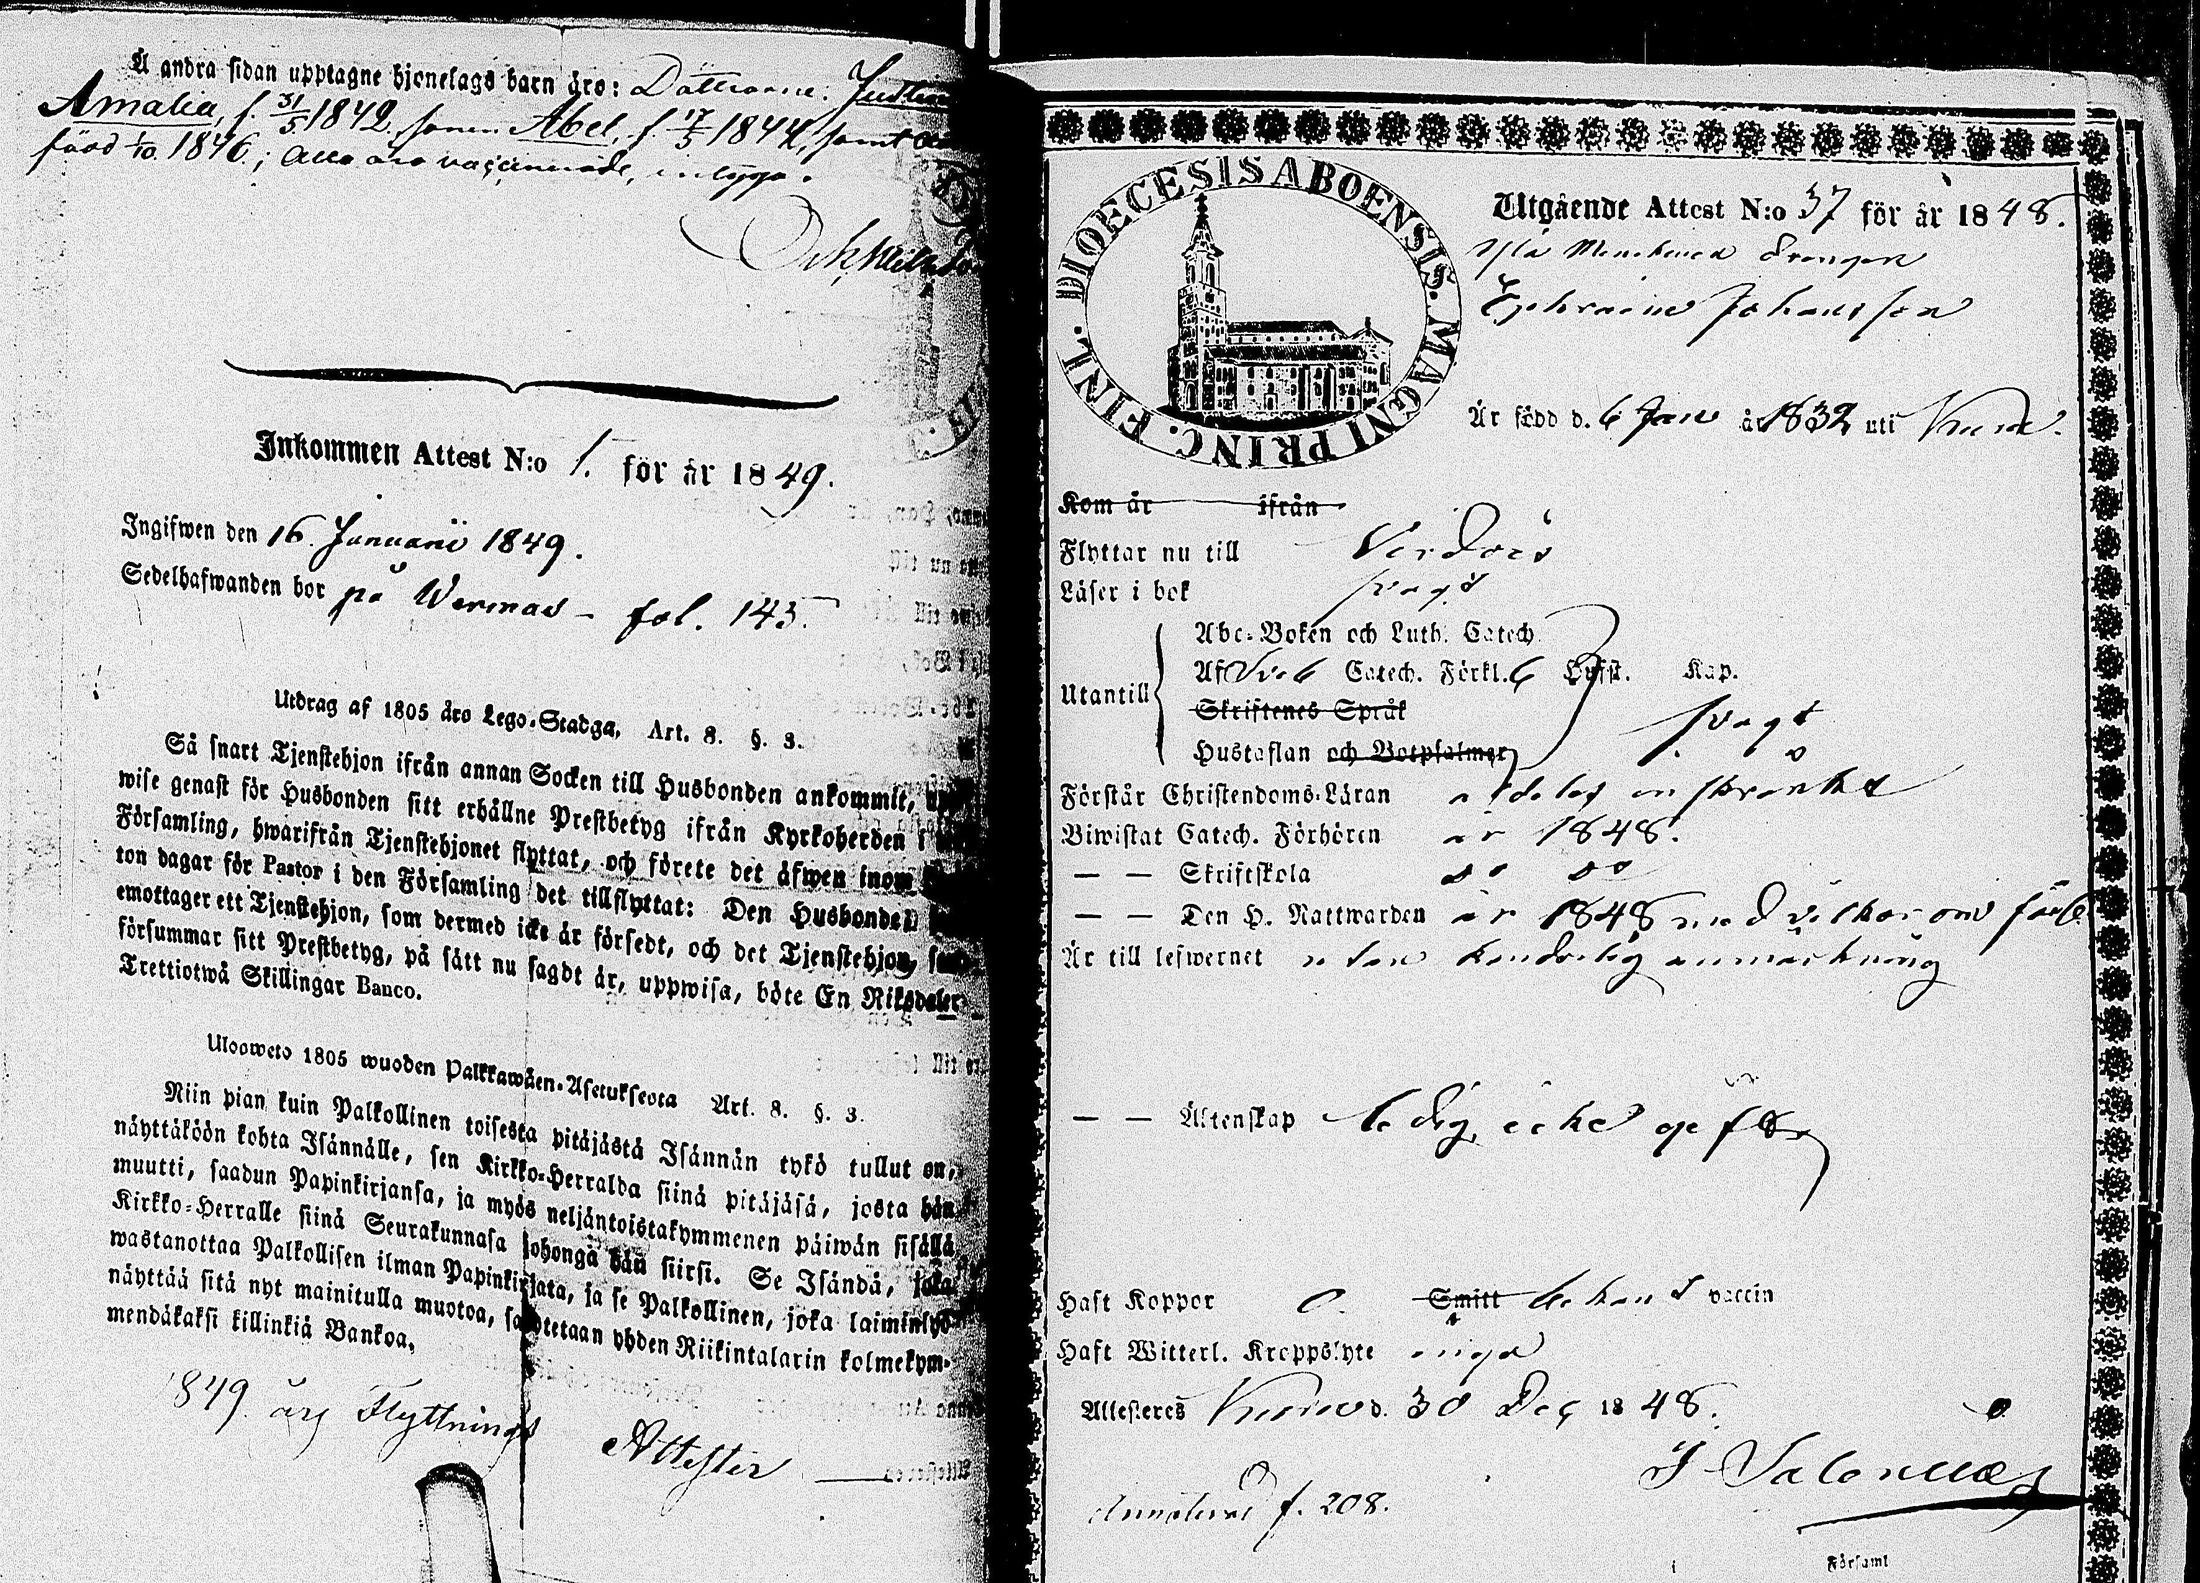 Å andra sidan upptagne hjonelags barn äro: Döttrarne:
Amalia, f. 31/5 1842, sonen Abel, f. 17/5 1844, samt
född 1/10 1846; alla äro vaccinerade, intygar
Inkommen Attest N:o 1. för år 1849.
Ingifwen den 16. Januarii 1849.
Sedelhafwanden bor på Wermas – fol. 145.
Utdrag af 1805 åro Lego-Stadga, Art. 8. §. 3.
Så snart Tjenstehjon ifrån annan Socken till Husbonden ankommit,
wise genast för Husbonden sitt erhållne Prestbetyg ifrån Kyrkoherden i
Församling, hwarifrån Tjenstehjonet flyttat, och förete det äfwen inom
ton dagar för Pastor i den Församling det tillflyttat: Den Husbonde
emottager ett Tjenstehjon, som dermed icke är försedt, och det Tjenstehjon,
försummar sitt Prestbetyg, på sätt nu sagdt är, uppwisa, böte En Riksdaler
Trettiotwå Skillingar Banco.
Uloosweto 1805 wuoden Palkkawäen-Asetuksesta Art. 8. §. 3.
Niin pian kuin Palkollinen toisesta pitäjästä Isännän tykö tullut on,
näyttäköön kohta Isännälle, sen Kirkko-Herralda siinä pitäjäsä, josta hän
muutti, saadun Papinkirjansa, ja myös neljäntoistakymmenen päiwän sisällä
Kirkko-Herralle siinä Seurakunnasa johonga hän siirsi. Se Isändä, joka
wastanottaa Palkollisen ilman Papinkirjata, ja se Palkollinen, joka laiminlyö
näyttää sitä nyt mainitulla muotoa, sakotetaan yhden Riikintalarin kolmekym-
mendäkaksi killinkiä Bankoa.
1849 års Flyttnings
Attester
DIOECESIS ABOENSIS. MAGNI PRINC. FINL.
Utgående Attest N:o 37 för år 1848.
Drängen
Ephraim Johansson
Är född d. 6 Jan år 1832 uti
Kom år ifrån
Flyttar nu till Vårdö
Läser i bok svagt
Abc-Boken och Luth. Catech.
Utantill Af Sveb Catech. Förkl. 6 Hufst. Kap.
Skriftenes Språk
Hustaflan och Botpsalmer svagt
Förstår Christendoms-Läran
Biwistat Catech. Förhören år 1848.
— — Skriftskola do do
— — Den H. Nattwarden år 1848 med
Är till lefwernet utan anmärkning
— — Äktenskap ledig, icke gift
Haft Koppor o. Smitt vaccin
Haft Witterl. Kroppslyte inga
Attesteres d. 30 Dec 1848.
f. 208.
Församl